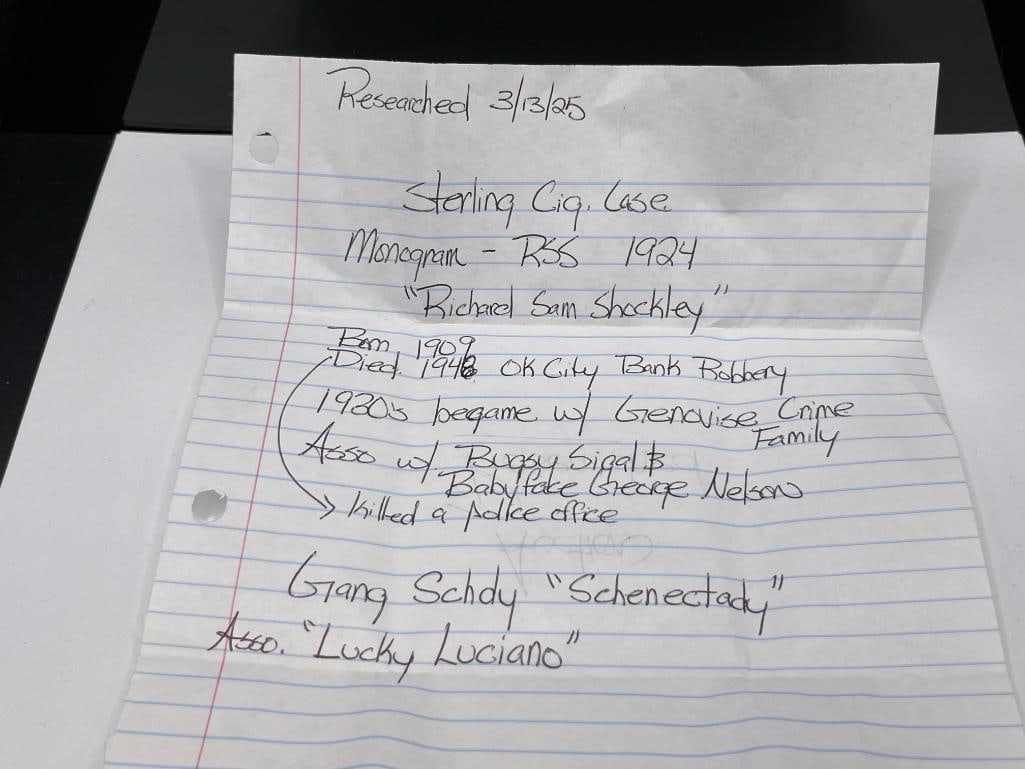 Researched 3/13/25
Sterling Cig. Case
Monogram - RSS 1924
"Richard Sam Shockley"
Born 1909
Died. 1948 OK City Bank Robbery
1920's begame w/ Genovise Crime
Family
Asso w/ Bugsy Sigal &
Babyfake George Nelson
> Killed a police office
Gang Schdy "Schenectady"
Asso. "Lucky Luciano"